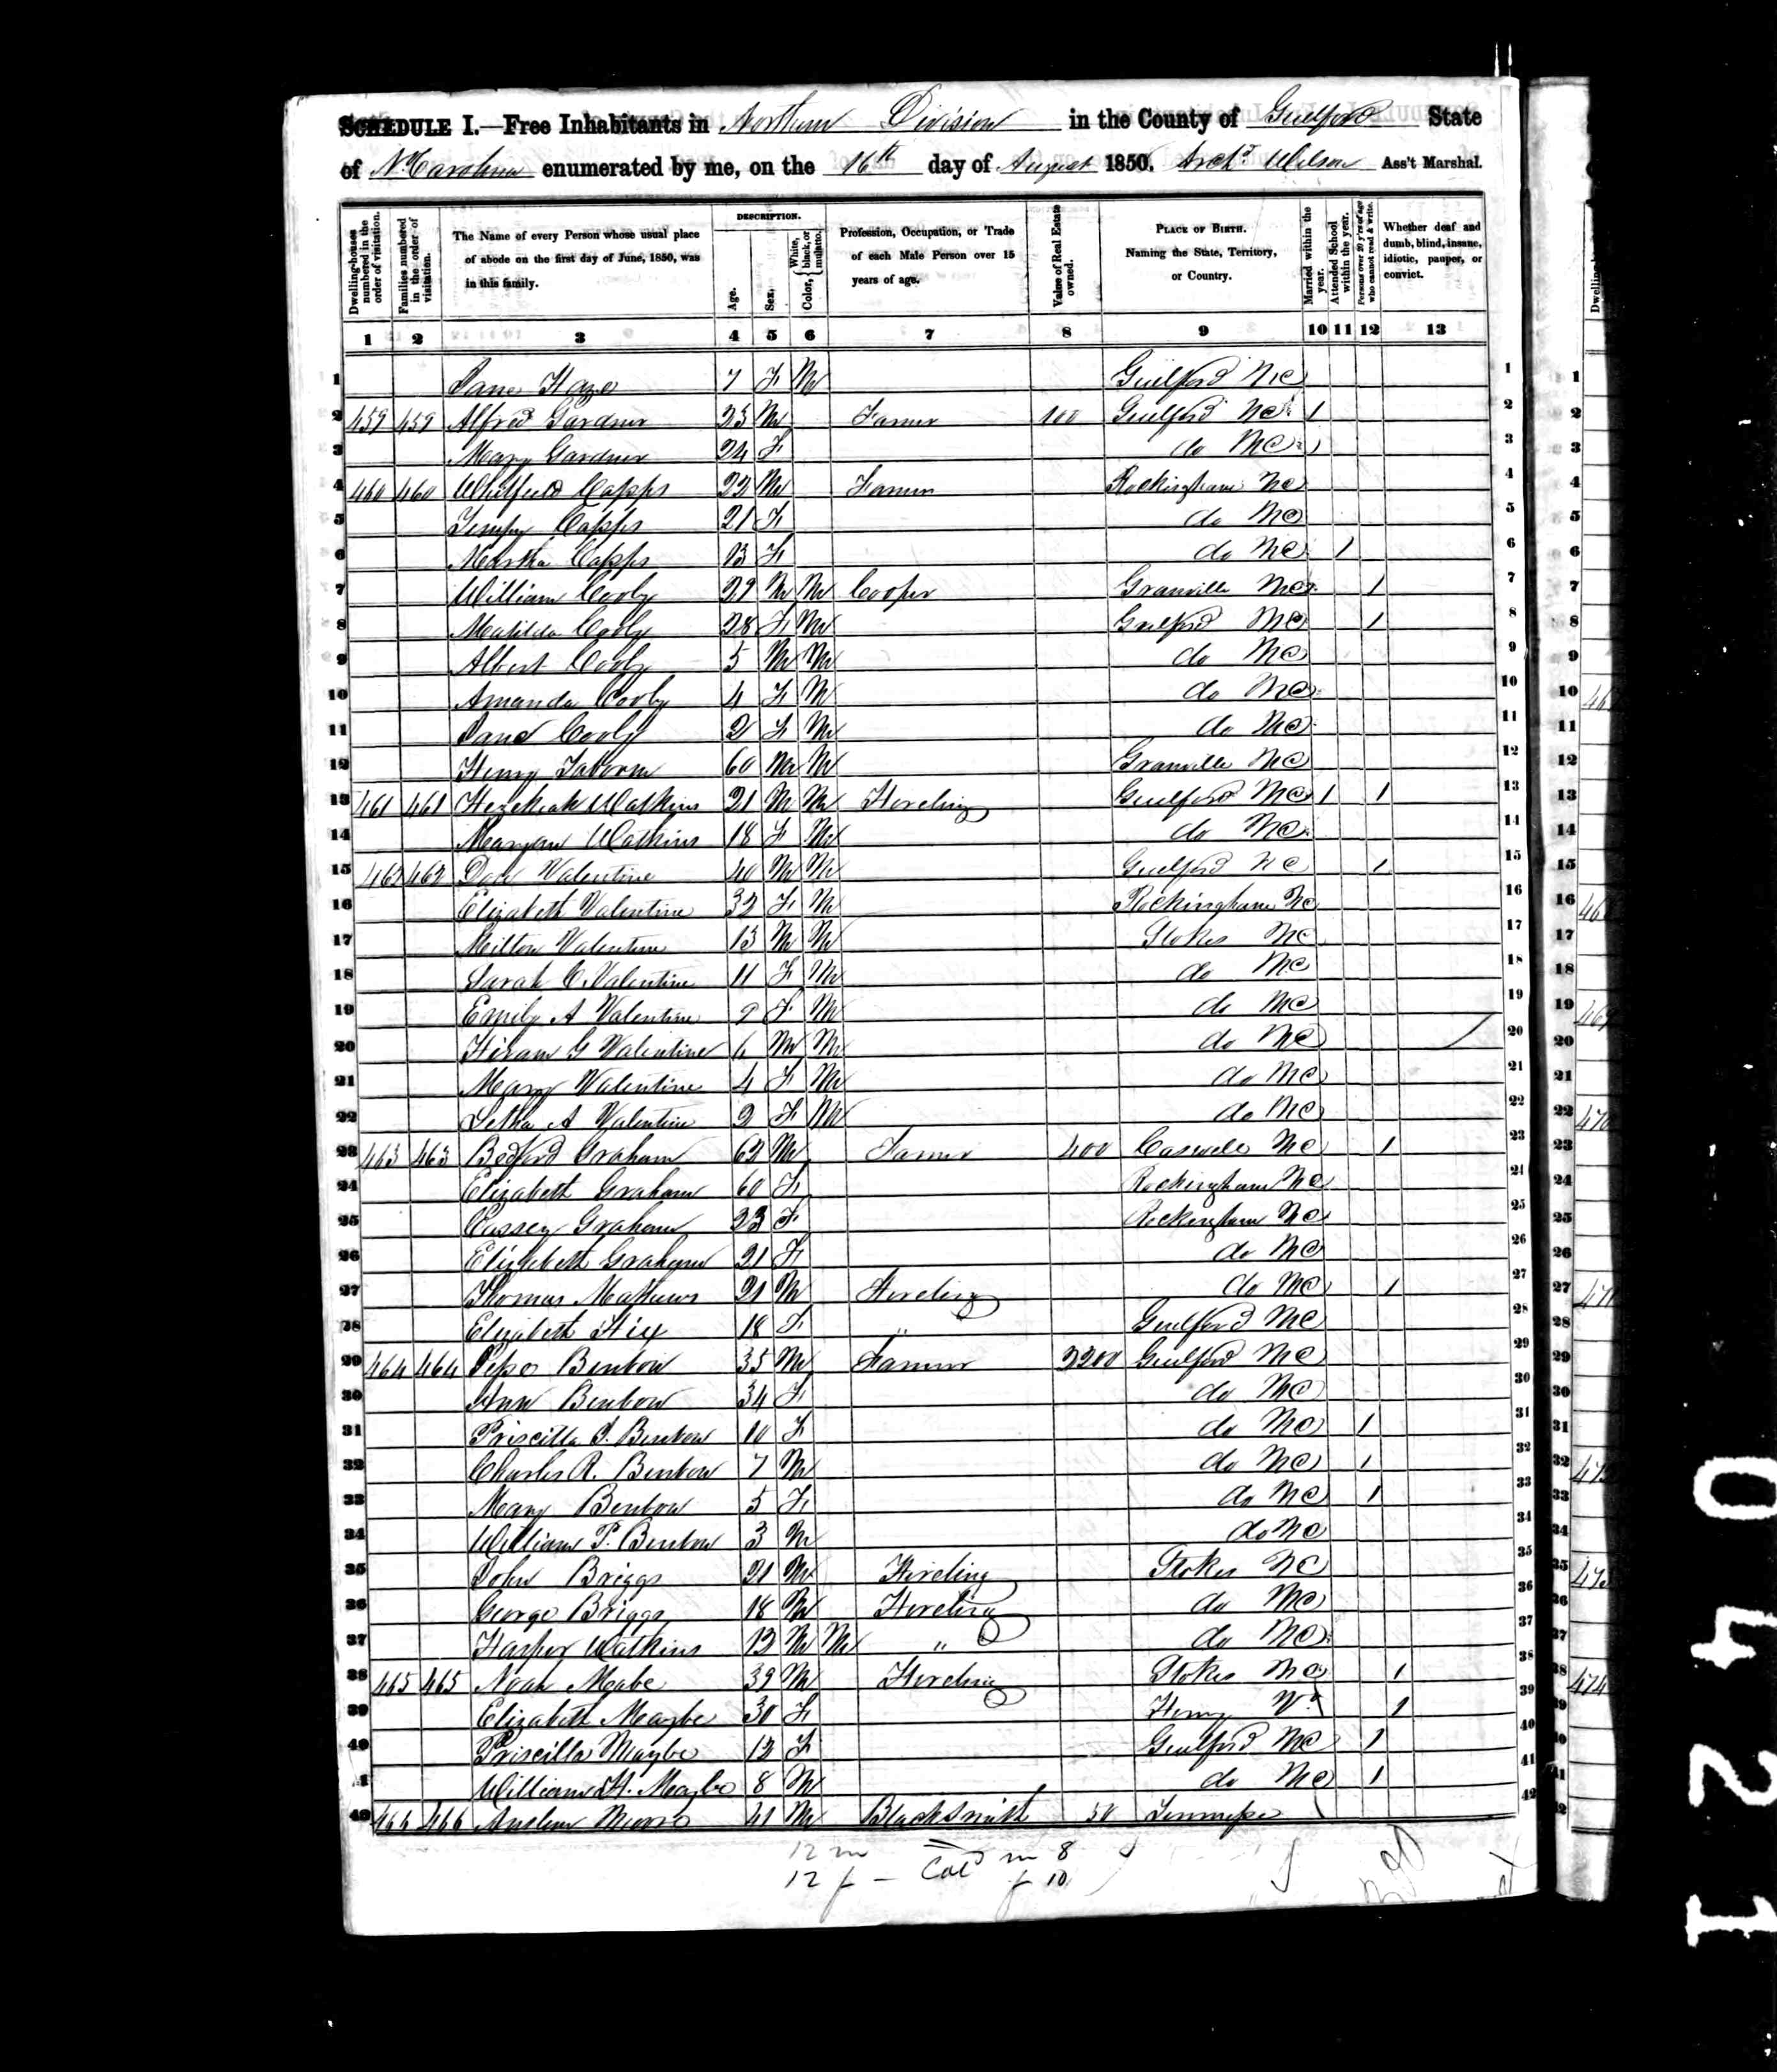 SCHEDULE I.—Free Inhabitants in Northern Division in the County of Guilford State
of N. Carolina enumerated by me, on the 16th day of August 1850. Archd Wilson Ass't Marshal.
Dwelling-houses numbered in the order of visitation.
Families numbered in the order of visitation.
The Name of every Person whose usual place of abode on the first day of June, 1850, was in this family.
DESCRIPTION.
Age.
Sex.
Color, { White, black, or mulatto.
Profession, Occupation, or Trade of each Male Person over 15 years of age.
Value of Real Estate owned.
PLACE OF BIRTH. Naming the State, Territory, or Country.
Married within the year.
Attended School within the year.
Persons over 20 y'rs of age who cannot read & write.
Whether deaf and dumb, blind, insane, idiotic, pauper, or convict.
1 2 3 4 5 6 7 8 9 10 11 12 13
1 Jane Haze 7 F M Guilford NC 1
2 459 459 Alfred Gardner 23 M Farmer 100 Guilford NC 1 2
3 Mary Gardner 24 F do NC 3
4 460 460 Whitfield Capps 22 M Farmer Rockingham NC 4
5 Tempy Capps 21 F do NC 5
6 Martha Capps 13 F do NC 1 6
7 William Cooly 29 M M Cooper Granville NC 1 7
8 Matilda Cooly 28 F M Guilford NC 1 8
9 Albert Cooly 5 M M do NC 9
10 Amanda Cooly 4 F M do NC 10
11 Jane Cooly 2 F M do NC 11
12 Henry Taborn 60 M M Granville NC 12
13 461 461 Hezekiah Watkins 21 M M Hireling Guilford NC 1 1 13
14 Maryan Watkins 18 F M do NC 14
15 462 462 Dan Valentine 40 M M Guilford NC 1 15
16 Elizabeth Valentine 32 F M Rockingham NC 16
17 Milton Valentine 13 M M Stokes NC 17
18 Sarah C. Valentine 11 F M do NC 18
19 Emily A Valentine 9 F M do NC 19
20 Hiram G Valentine 6 M M do NC 20
21 Mary Valentine 4 F M do NC 21
22 Letha A Valentine 2 F M do NC 22
23 463 463 Bedford Graham 62 M Farmer 400 Caswell NC 1 23
24 Elizabeth Graham 60 F Rockingham NC 24
25 Cassey Graham 23 F Rockingham NC 25
26 Elizabeth Graham 21 F do NC 26
27 Thomas Mathews 21 M Hireling do NC 1 27
28 Elizabeth Hix 18 F " Guilford NC 28
29 464 464 Benbow 35 M Farmer 2200 Guilford NC 29
30 Ann Benbow 34 F do NC 30
31 Priscilla J. Benbow 10 F do NC 1 31
32 Charles R. Benbow 7 M do NC 1 32
33 Mary Benbow 5 F do NC 1 33
34 William P. Benbow 3 M do NC 34
35 John Briggs 21 M Hireling Stokes NC 35
36 George Briggs 18 M Hireling do NC 36
37 Harper Watkins 12 M M " do NC 37
38 465 465 Noah Mabe 39 M Hireling Stokes NC 1 38
39 Elizabeth Maybe 30 F Henry Va 1 39
40 Priscilla Maybe 12 F Guilford NC 1 40
41 William H. Maybe 8 M do NC 1 41
42 466 466 41 M Blacksmith 50 Tennessee 42
12 m Cold m 8
12 f — f 10
0421